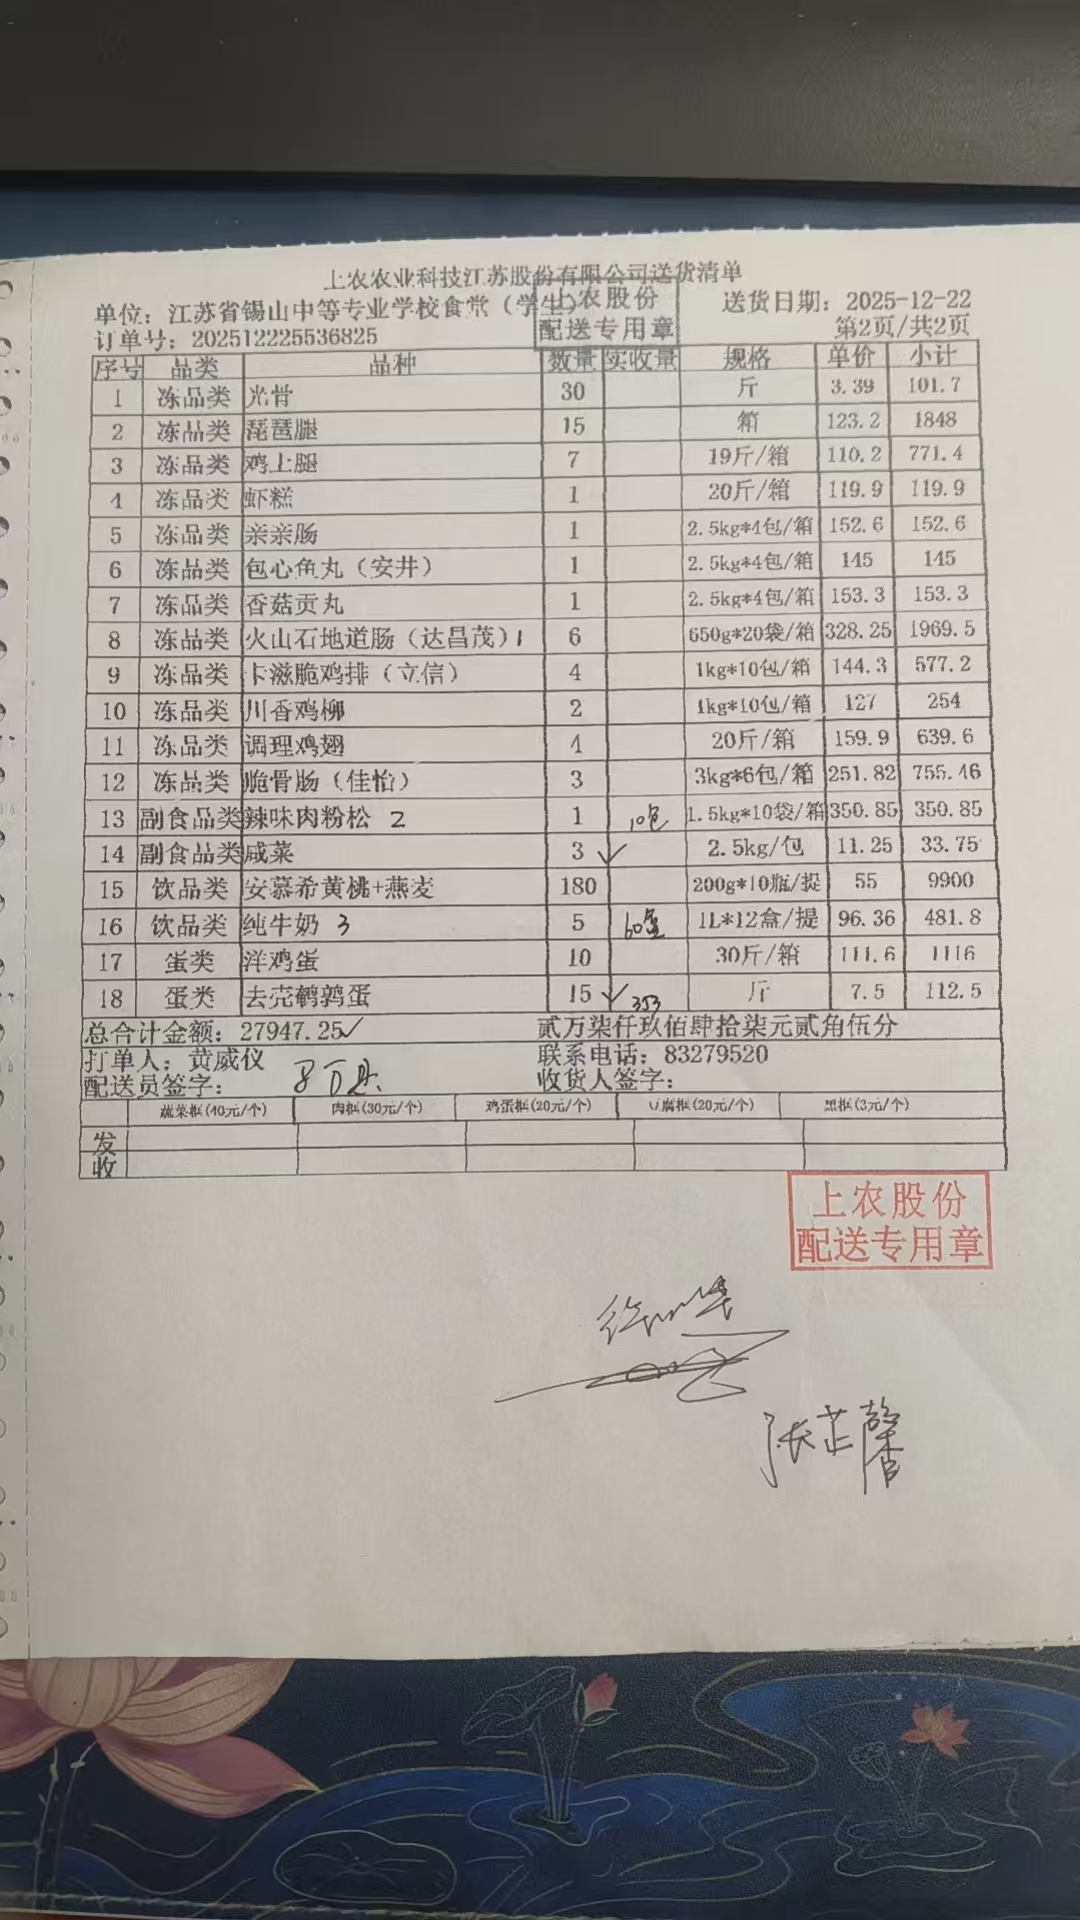 上农农业科技江苏股份有限公司送货清单
单位：江苏省锡山中等专业学校食堂（学生） 送货日期：2025-12-22
上农股份
配送专用章
订单号：202512225536825 第2页/共2页
序号 品类 品种 数量 实收量 规格 单价 小计
1 冻品类 光骨 30 斤 3.39 101.7
2 冻品类 琵琶腿 15 箱 123.2 1848
3 冻品类 鸡上腿 7 19斤/箱 110.2 771.4
4 冻品类 虾糕 1 20斤/箱 119.9 119.9
5 冻品类 亲亲肠 1 2.5kg*4包/箱 152.6 152.6
6 冻品类 包心鱼丸（安井） 1 2.5kg*4包/箱 145 145
7 冻品类 香菇贡丸 1 2.5kg*4包/箱 153.3 153.3
8 冻品类 火山石地道肠（达昌茂）1 6 650g*20袋/箱 328.25 1969.5
9 冻品类 卡滋脆鸡排（立信） 4 1kg*10包/箱 144.3 577.2
10 冻品类 川香鸡柳 2 1kg*10包/箱 127 254
11 冻品类 调理鸡翅 4 20斤/箱 159.9 639.6
12 冻品类 脆骨肠（佳怡） 3 3kg*6包/箱 251.82 755.46
13 副食品类 辣味肉粉松 2 1 10包 1.5kg*10袋/箱 350.85 350.85
14 副食品类 咸菜 3 ✓ 2.5kg/包 11.25 33.75
15 饮品类 安慕希黄桃+燕麦 180 200g*10瓶/提 55 9900
16 饮品类 纯牛奶 3 5 60盒 1L*12盒/提 96.36 481.8
17 蛋类 洋鸡蛋 10 30斤/箱 111.6 1116
18 蛋类 去壳鹌鹑蛋 15 ✓ 353 斤 7.5 112.5
总合计金额：27947.25✓ 贰万柒仟玖佰肆拾柒元贰角伍分
打单人：黄威仪 联系电话：83279520
配送员签字： 收货人签字：
蔬菜框(40元/个) 肉框(30元/个) 鸡蛋框(20元/个) 豆腐框(20元/个) 黑框(3元/个)
发
收
上农股份
配送专用章
张芷馨